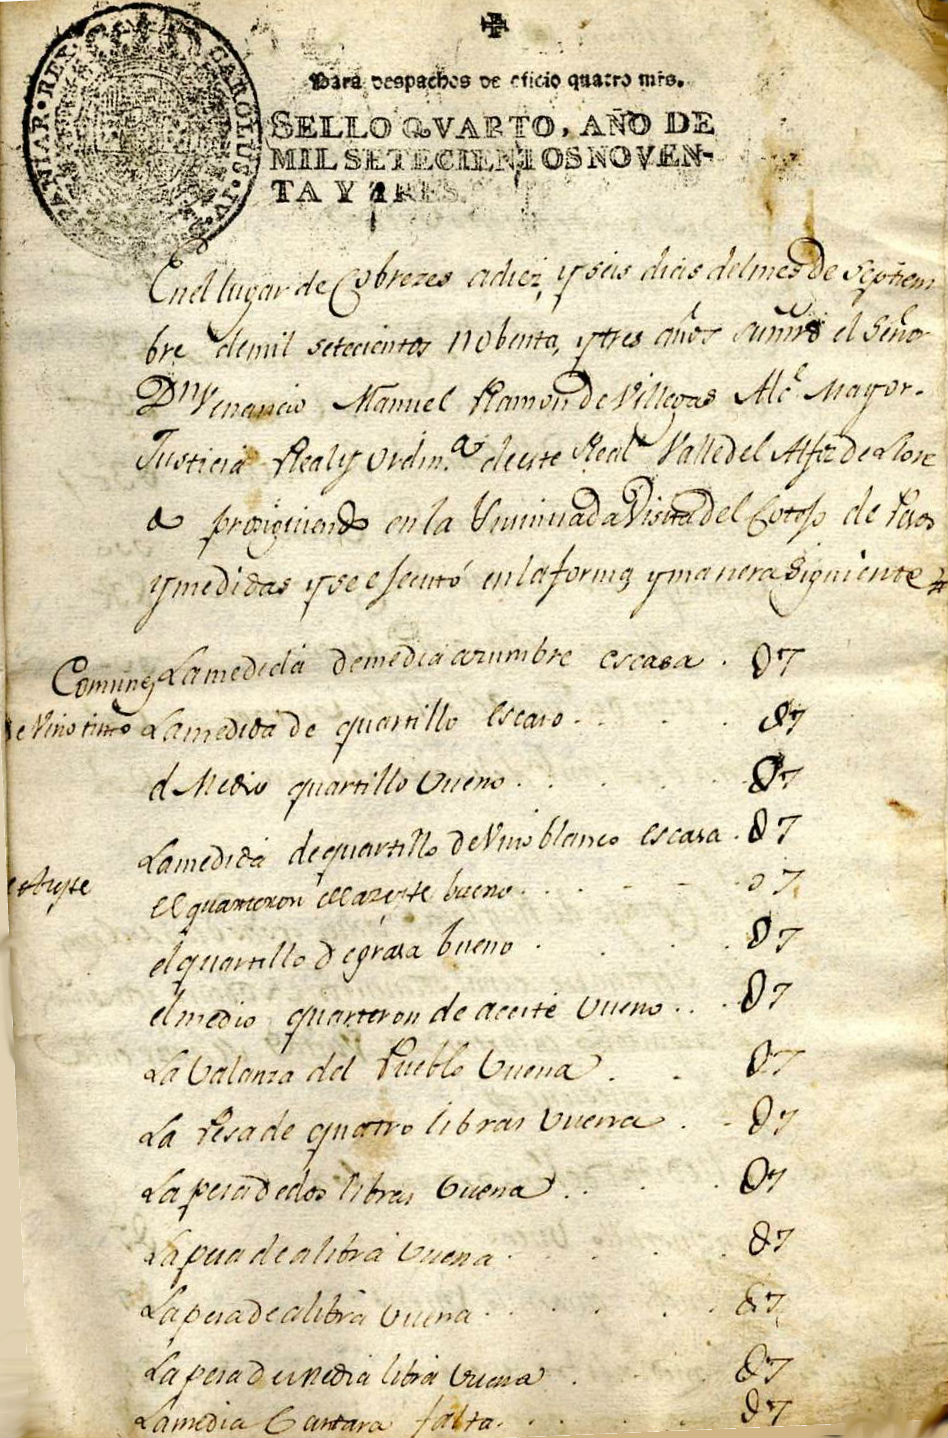 HISPANIAR · REX · CAROLUS · IV · D
Para despachos de oficio quatro mrs.
SELLO QVARTO, AÑO DE
MIL SETECIENTOS NOVEN-
TA Y TRES.
En el lugar de Cobrezes a diez, y seis dias del mes de Septiem
bre de mil setecientos nobenta, y tres años su mrd el Señor
Dn Venancio Manuel Ramon de Villegas Alce Mayor.
Justicia Real y Ordin.a de este Real Valle del Alfoz de Llore
do prosiguiendo en la Enunciada Visita del Cotejo de Pesos
y medidas y se ejecutó en la forma, y manera siguiente
Comunes La medida de media azumbre escasa . 07
de Vino tinto La medida de quartillo escaso . . . . 07
el Medio quartillo bueno . . . . 07
La medida de quartillo de Vino blanco escasa . 07
el quarteron de azeyte bueno . . . 07
el quartillo de grasa bueno . . . 07
el medio quarteron de aceite bueno . . . 07
La balanza del Pueblo buena . . 07
La Pesa de quatro libras buena . . 07
La pesa de dos libras buena . . . 07
La pesa de a libra buena . . . . 07
La pesa de a libra buena . . . . 07
La pesa de media libra buena . . 07
La media Cantara falta . . . . 07